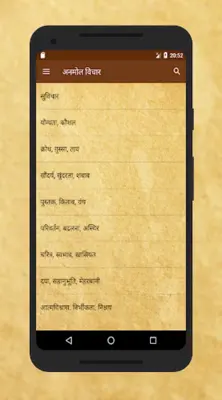 20:52
अनमोल विचार
सुविचार
योग्यता, कौशल
क्रोध, गुस्सा, ताव
सौंदर्य, सुंदरता, शबाब
पुस्तक, किताब, ग्रंथ
परिवर्तन, बदलना, अस्थिर
चरित्र, स्वभाव, खासियत
दया, सहानुभूति, मेहरबानी
आत्मविश्वास, निर्भीकता, निश्चय